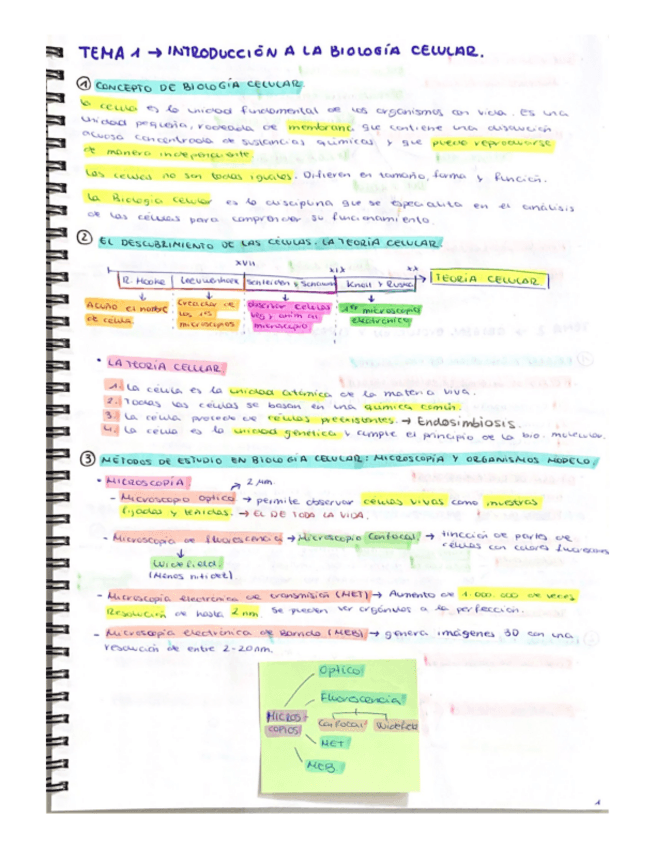 TEMA 1 → INTRODUCCIÓN A LA BIOLOGÍA CELULAR.
① CONCEPTO DE BIOLOGÍA CELULAR.
la célula es la unidad fundamental de los organismos con vida. Es una
unidad pequeña, rodeada de membrana que contiene una disolución
acuosa concentrada de sustancias químicas y que puede reproducirse
de manera independiente.
Las células no son todas iguales. Difieren en tamaño, forma y función.
La Biología Celular es la disciplina que se especializa en el análisis
de las células para comprender su funcionamiento.
② EL DESCUBRIMIENTO DE LAS CÉLULAS. LA TEORÍA CELULAR.
XVII XIX XX
R. Hooke Leeuwenhoek Schleiden y Schwann Knoll y Ruska → TEORÍA CELULAR
Acuñó el nombre creador de describir células 1er microscopio
de célula. los 1os veg y anim al electrónico
microscopios microscopio
• LA TEORÍA CELULAR
1. La célula es la unidad atómica de la materia viva.
2. Todas las células se basan en una química común.
3. La célula procede de células preexistentes. → Endosimbiosis.
4. La célula es la unidad genética y cumple el principio de la bio. molecular.
③ MÉTODOS DE ESTUDIO EN BIOLOGÍA CELULAR: MICROSCOPÍA Y ORGANISMOS MODELO.
• MICROSCOPÍA
2 µm.
- Microscopio Óptico → permite observar células vivas como muestras
fijadas y teñidas. → EL DE TODA LA VIDA.
- Microscopía de fluorescencia → Microscopio Confocal. → tinción de partes de
células con colores fluorescentes
Widefield.
(Menos nitidez)
- Microscopía electrónica de transmisión (MET) → Aumento de 1.000.000 de veces
Resolución de hasta 2 nm. se pueden ver orgánulos a la perfección.
- Microscopía electrónica de Barrido (MEB) → genera imágenes 3D con una
resolución de entre 2-20nm.
Óptico
Fluorescencia
MICROS-
COPIOS
Confocal Widefield
MET
MEB
1